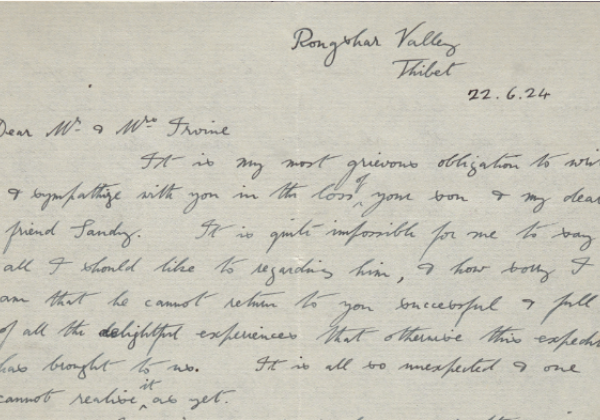 Rongshar Valley
Thibet
22.6.24
Dear Mr. & Mrs. Irvine
It is my most grievous obligation to
& sympathize with you in the loss of your son & my dear
friend Sandy. It is quite impossible for me to say
all I should like to regarding him, & how sorry I
am that he cannot return to you successful & full
of all the delightful experiences that otherwise this
has brought to us. It is all so unexpected & one
cannot realise it as yet.